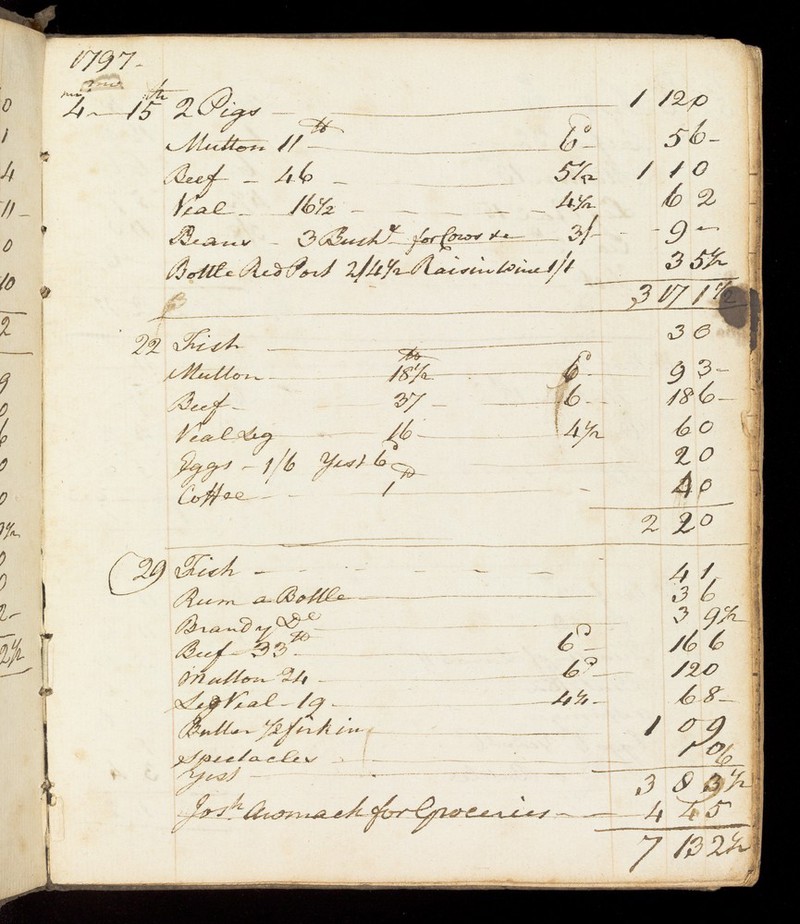 1797-
mo
4 - 15 th 2 Pigs 1 12 0
Mutton 11 lb 6d 5 6 -
Beef - 46 - 5½ 1 1 0
Veal - 16½ - 4½ 6 2
Beans - 3 Bushs for Cows &c 3/ - 9 -
Bottle Red Port 2/4½ Raisin wine 1/1 3 5½
3 17 1½
22 Fish 3 0
Mutton 18½ lb 6d 9 3 -
Beef 37 - 6 - 18 6 -
Veal Leg 16 - 4½ 6 0
Eggs - 1/6 Yest 6d 2 0
Coffee - 1 lb - 4 0
2 2 0
29 Fish 4 1
Rum a Bottle 3 6
Brandy Do 3 9½
Beef 33 lb 6d - 16 6
Mutton 24 6d 12 0
Leg Veal - 19 - 4¼ - 6 8 -
Butter ½ firkin 1 0 9
Spectacles 1 0
Yest 6
3 8 3½
Josh for Groceries 4 4 5
7 13 2½
0
1
4
11 -
0
10
2
9
0
6
0
0
0
0
2 -
2½